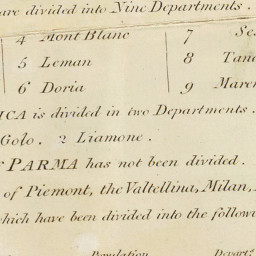 are divided into Nine Departments.
4 Mont Blanc 7
5 Leman 8
6 Doria 9
is divided in two Departments.
Golo. 2 Liamone.
PARMA has not been divided.
of Piemont, the Valtellina, Milan,
which have been divided into the
Population